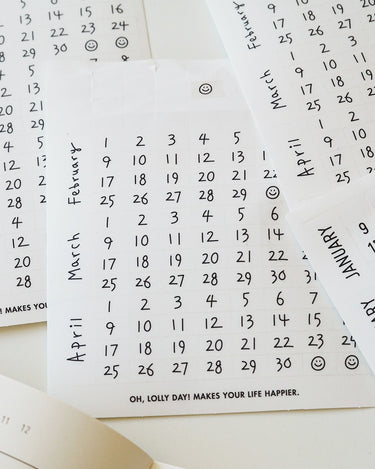 February
1 2 3 4 5
9 10 11 12 13 1
17 18 19 20 21 22
25 26 27 28 29
March
1 2 3 4 5 6
9 10 11 12 13 14
17 18 19 20 21 22
25 26 27 28 29 30 31
April
1 2 3 4 5 6 7
9 10 11 12 13 14 15
17 18 19 20 21 22 23
25 26 27 28 29 30
OH, LOLLY DAY! MAKES YOUR LIFE HAPPIER.
13 14 15 16
22 23 24
28 29 30
! MAKES YOU
4
12
20
28
February
9 10 11
17 18 19
25 26 27
March
1 2 3
9 10 11
17 18 19
25 26 27
April
1 2
9 10
17 18
25
JANUARY
11 12